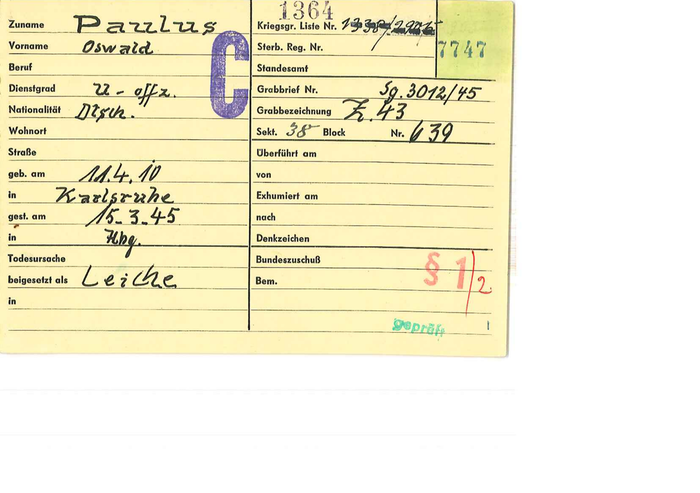 1364
Zuname Paulus
Vorname Oswald
Beruf
Dienstgrad U-offz.
Nationalität Dtsch.
Wohnort
Straße
geb. am 11.4.10
in Karlsruhe
gest. am 15.3.45
in Hbg.
Todesursache
beigesetzt als Leiche
in
C
Kriegsgr. Liste Nr.
7747
Sterb. Reg. Nr.
Standesamt
Grabbrief Nr. Sg. 3012/45
Grabbezeichnung Z. 43
Sekt. 38 Block Nr. 639
Überführt am
von
Exhumiert am
nach
Denkzeichen
Bundeszuschuß
Bem.
§ 1/2
geprüft